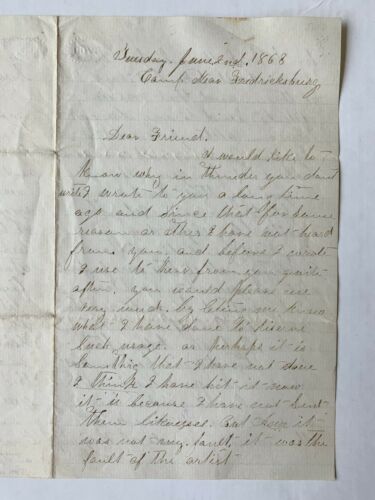 Tuesday June 2nd, 1863
Camp Near Fredricksburg
Dear Friend.
I would like to
know why in thunder you dont
write I wrote to you a long time
ago and since that (for some
reason or other I have not heard
from you and before I wrote
I use to hear from you quite
often. you would please me
very much by leting me know
what I have done to deserve
such usage. or perhaps it is
something that I have not done
I think I have hit it now
it is because I have not sent
them likenesses. but it
was not my fault, it was the
fault of the artist